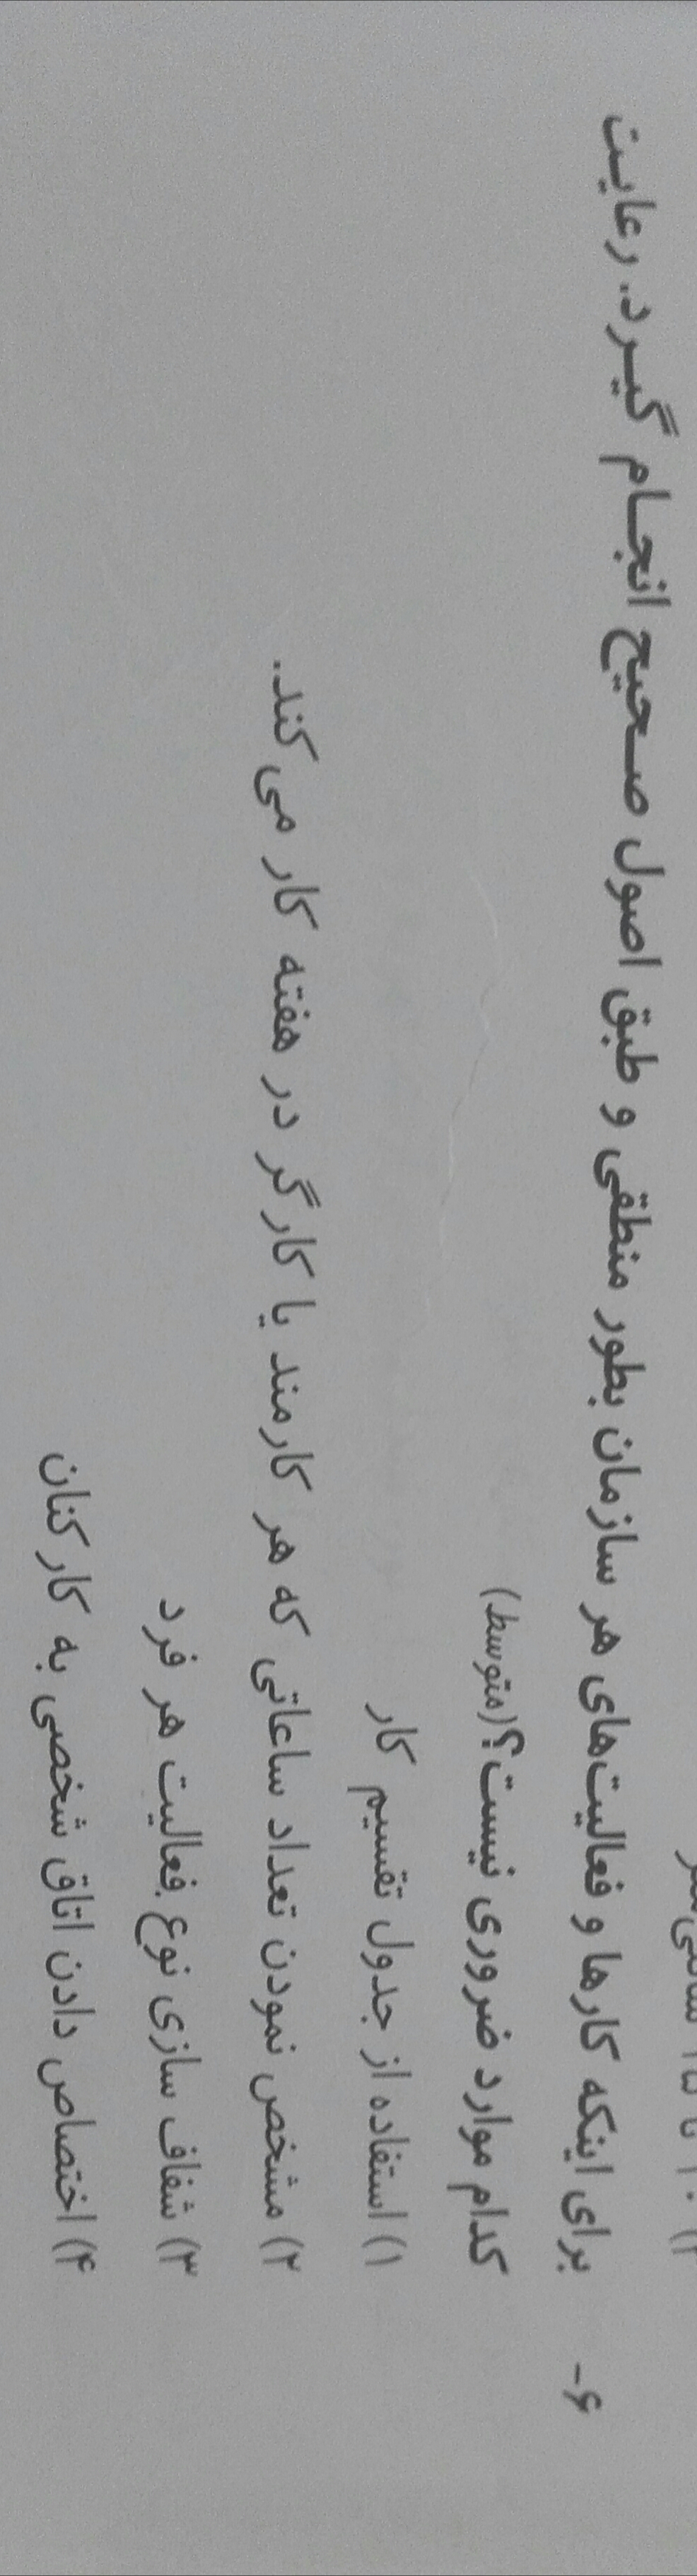 ۶- برای اینکه کارها و فعالیت‌های هر سازمان بطور منطقی و طبق اصول صحیح انجام گیرد. رعایت
کدام موارد ضروری نیست؟ (متوسط)
۱) استفاده از جدول تقسیم کار
۲) مشخص نمودن تعداد ساعاتی که هر کارمند یا کارگر در هفته کار می‌کند.
۳) شفاف سازی نوع فعالیت هر فرد
۴) اختصاص دادن اتاق شخصی به کارکنان